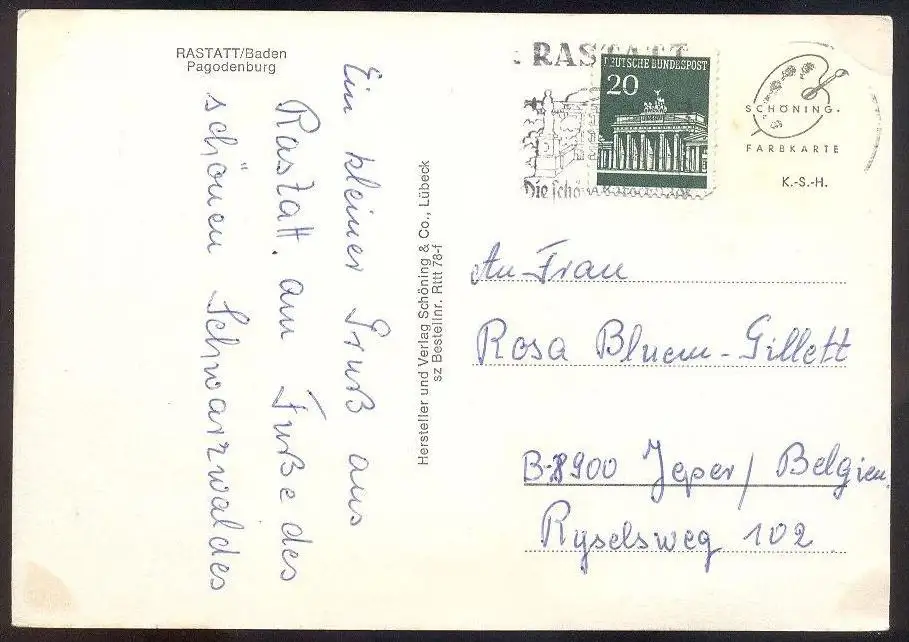 RASTATT/Baden
Pagodenburg
Ein kleiner Gruß aus
Rastatt. am Fuße des
schönen Schwarzwaldes
Hersteller und Verlag Schöning & Co., Lübeck
sz Bestellnr. Rttt 78-f
RASTATT
Die schöne
DEUTSCHE BUNDESPOST
20
SCHÖNING
FARBKARTE
K.-S.-H.
An Frau
Rosa Bluem-Gillett
B-8900 Jeper/Belgien
Ryselsweg 102